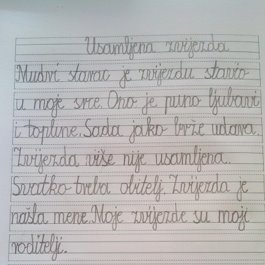 Usamljena zvijezda
Mudri starac je zvijezdu stavio
u moje srce. Ono je puno ljubavi
i topline. Sada jako brže udara.
Zvijezda više nije usamljena.
Svatko treba obitelj. Zvijezda je
našla mene. Moje zvijezde su moji
roditelji.